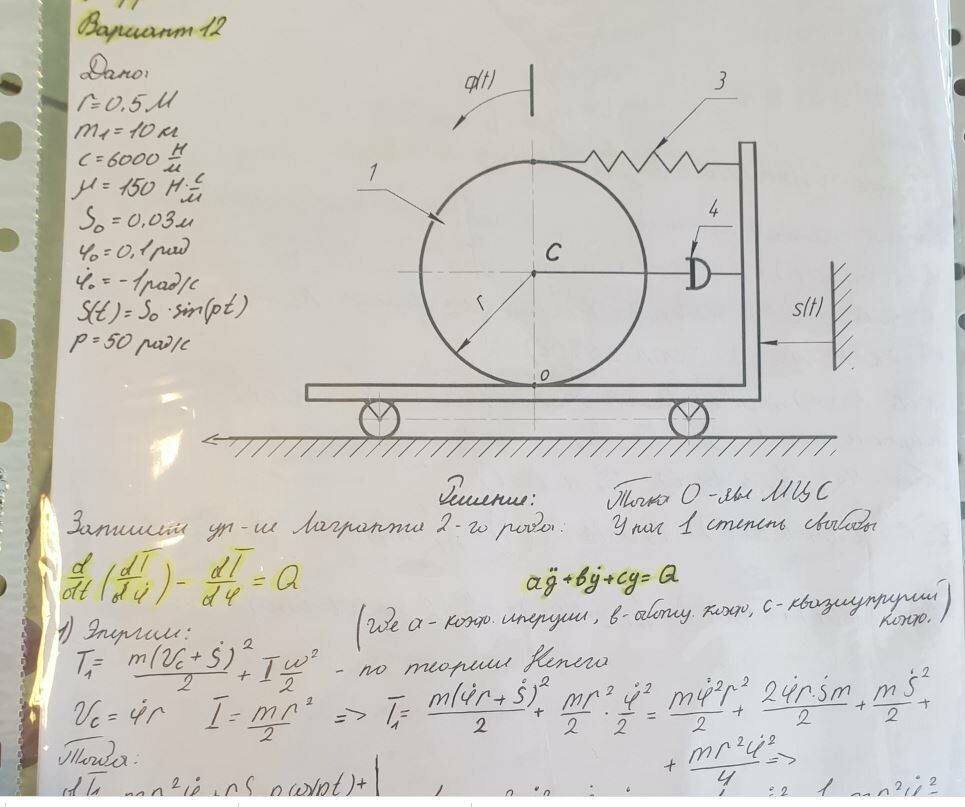 Вариант 12
Дано:
r = 0.5 м
m₁ = 10 кг
c = 6000 Н/м
μ = 150 Н·с/м
S₀ = 0,03м
φ₀ = 0,1 рад
φ̇₀ = -1 рад/с
S(t) = S₀·sin(pt)
p = 50 рад/с
φ(t)
3
1
4
C
r
s(t)
O
Решение: Точка O - явл МЦС
Запишем ур-ие Лагранжа 2-го рода: У нас 1 степень свободы
d/dt (dT/dφ̇) - dT/dφ = Q
aÿ + bẏ + cy = Q
(где a - коэф. инерции, b - обобщ. коэф, c - квазиупругий коэф.)
1) Энергии:
T₁ = m(Vc + Ṡ)²/2 + Iω²/2 - по теореме Кенега
Vc = φ̇r I = mr²/2 => T₁ = m(φ̇r + Ṡ)²/2 + mr²/2 · φ̇²/2 = mφ̇²r²/2 + 2φ̇r·ṡm/2 + mṠ²/2 +
+ mr²φ̇²/4 =>
Тогда: